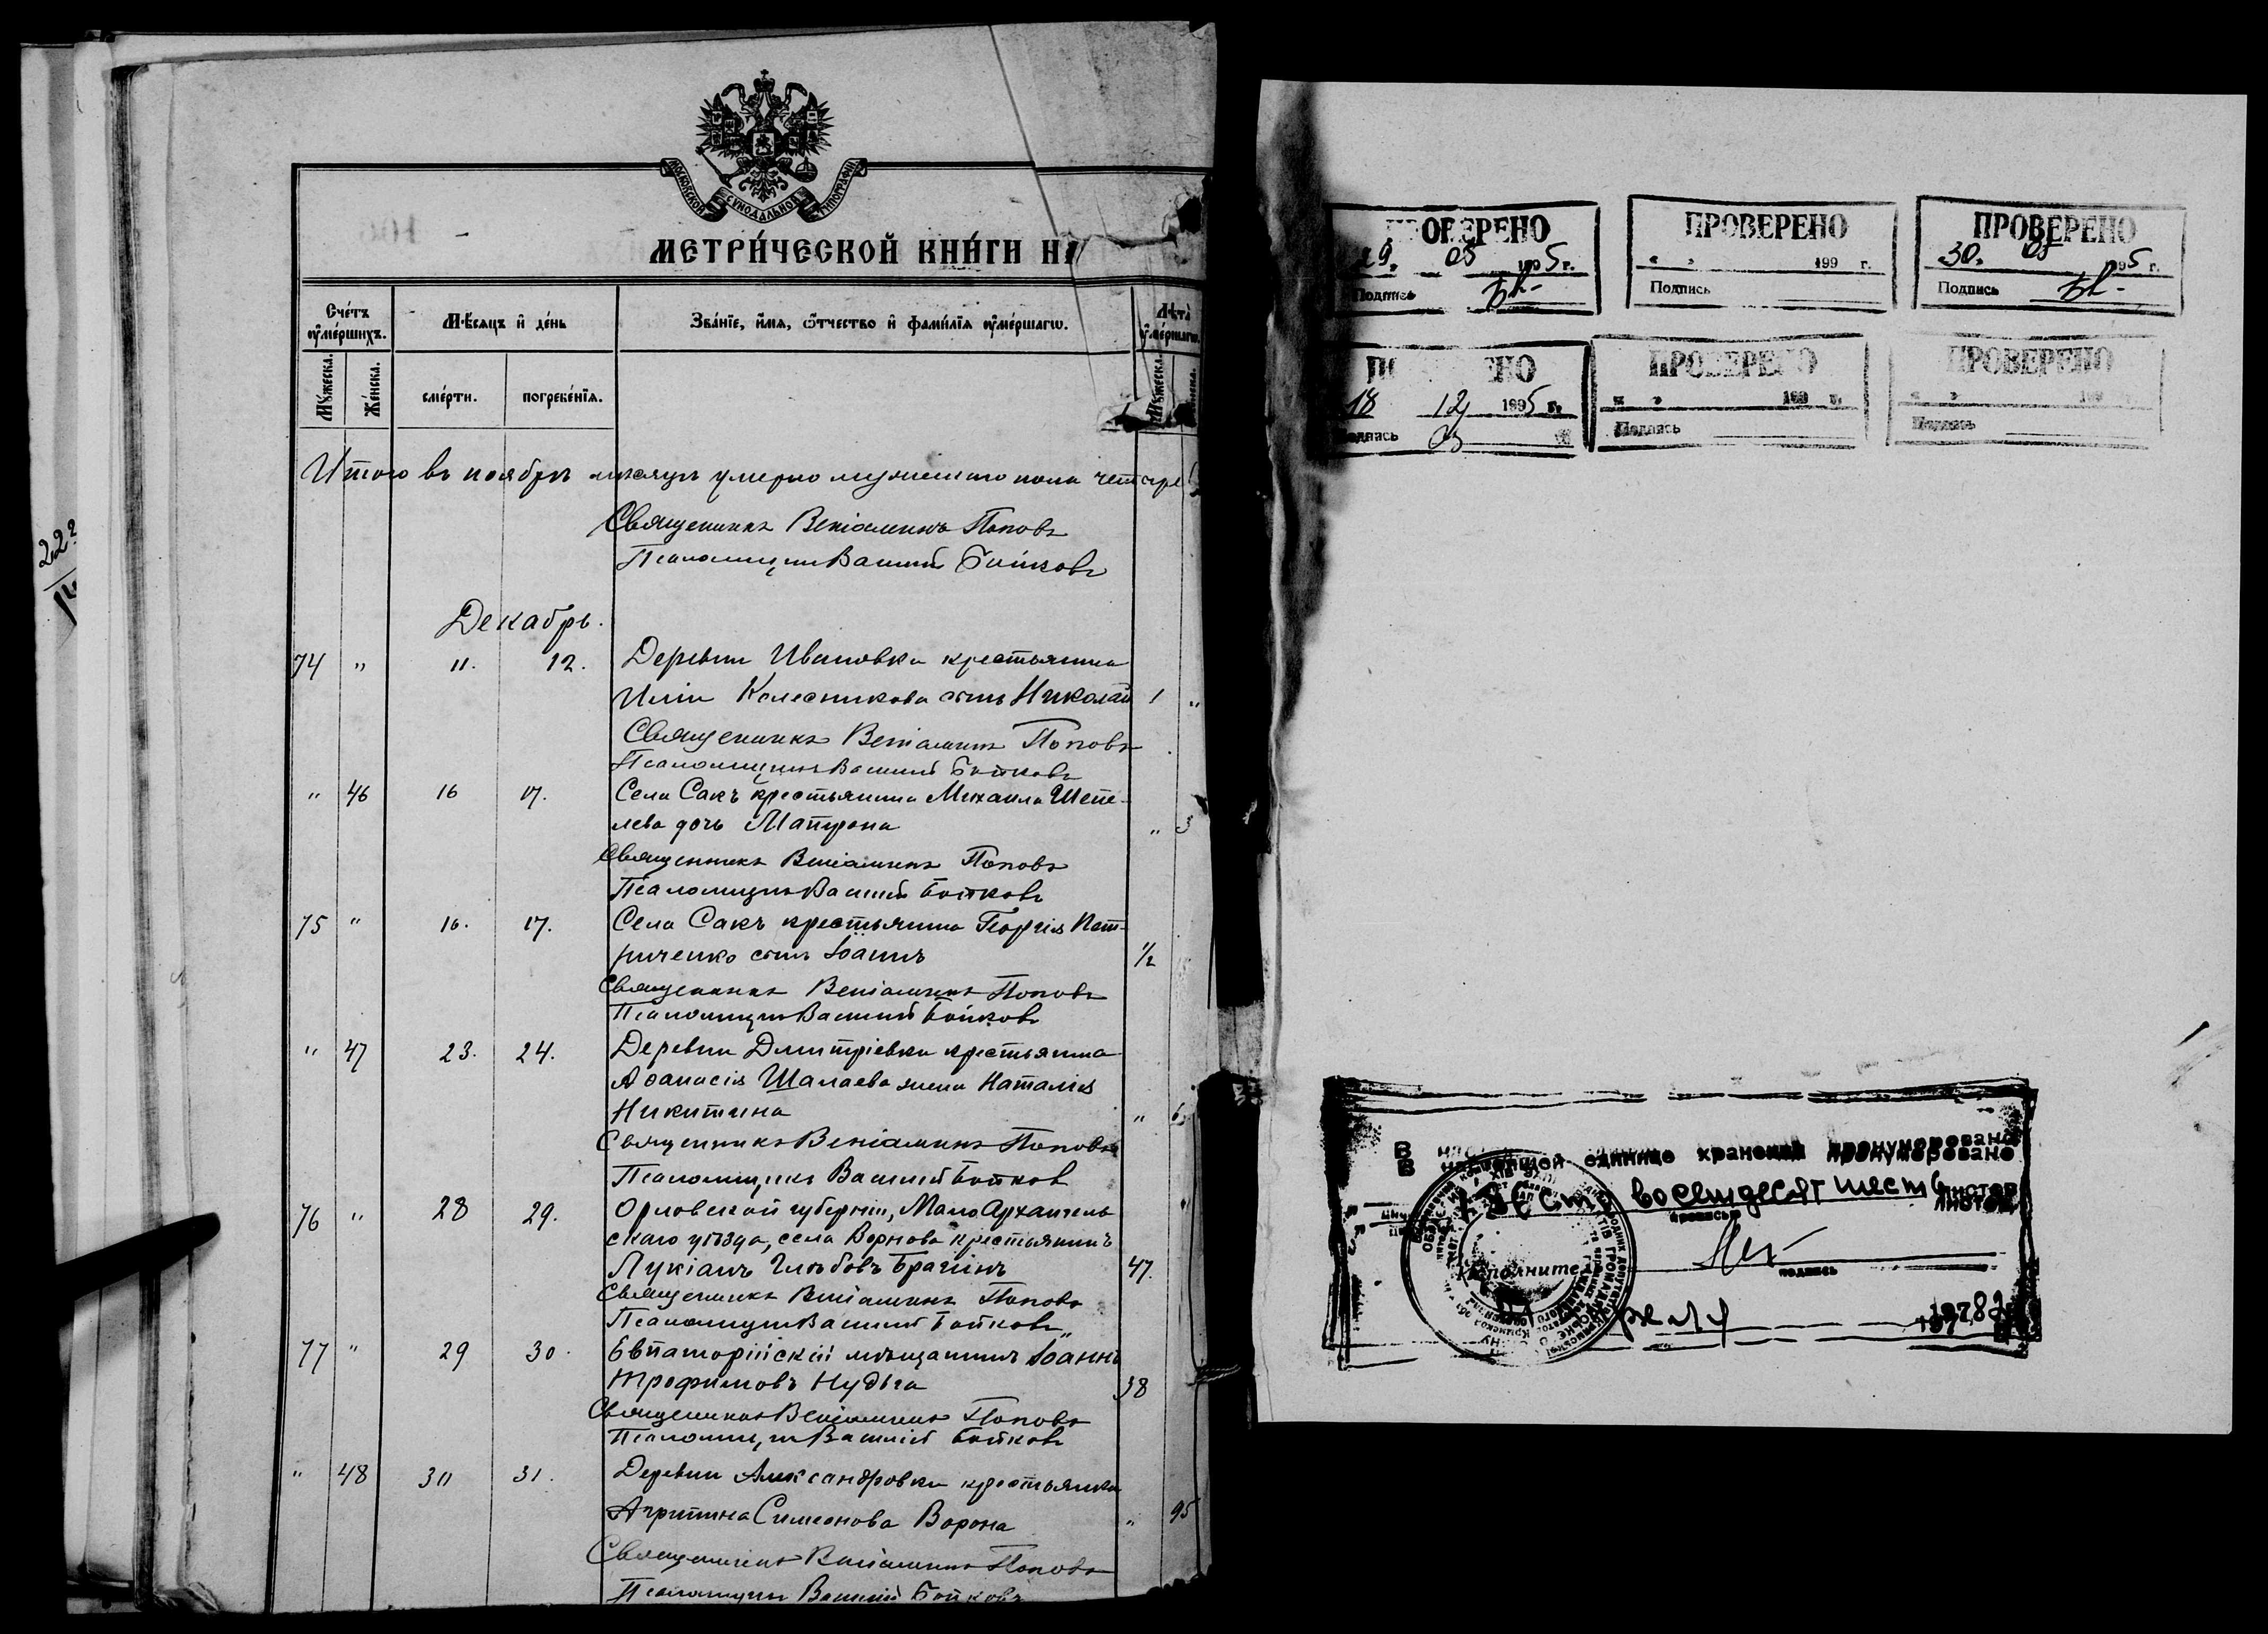 МОСКОВСКОЙ СѴНОДАЛЬНОЙ ТИПОГРАФІИ
МЕТРИ́ЧЕСКОЙ КНИ́ГИ НА
Сче́тъ ᲂу҆ме́ршихъ.
Мѣ́сѧцъ и҆ де́нь
Зва́нїе, и҆́мѧ, ѻ҆́тчество и҆ фами́лїѧ ᲂу҆ме́ршагѡ.
Лѣ́та ᲂу҆ме́ршагѡ.
Мꙋ́жеска.
Же́нска.
сме́рти.
погребе́нїѧ.
Мꙋ́жеска.
Итого въ ноябрѣ мѣсяцѣ умерло мужескаго пола четыре
Священникъ Веніаминъ Поповъ
Псаломщикъ Василій Бойковъ
Декабрь.
74 " 11. 12. Деревни Ивановки крестьянина
Иліи Колесникова сынъ Николай 1 "
Священникъ Веніаминъ Поповъ
Псаломщикъ Василій Бойковъ
" 46 16 17. Села Сакъ крестьянина Михаила Шепе-
лева дочь Матрона " 3
Священникъ Веніаминъ Поповъ
Псаломщикъ Василій Бойковъ
75 " 16. 17. Села Сакъ крестьянина Георгія Пет-
риченко сынъ Іоаннъ 1/2
Священникъ Веніаминъ Поповъ
Псаломщикъ Василій Бойковъ
" 47 23. 24. Деревни Дмитріевки крестьянина
Аѳанасія Шалаева жена Наталія
Никитина "
Священникъ Веніаминъ Поповъ
Псаломщикъ Василій Бойков
76 " 28 29. Орловской губерніи, Мало Архангель
скаго уѣзда, села крестьянинъ
Лукіанъ Глѣбовъ Брагинъ 47.
Священникъ Веніаминъ Поповъ
Псаломщикъ Василій Бойковъ
77 " 29 30. Евпаторійскій мѣщанинъ Іоаннъ
Трофимовъ Нудьга 38
Священникъ Веніаминъ Поповъ
Псаломщикъ Василій Бойковъ
" 48 30 31. Деревни Александровки крестьянка
Агрипина Симеонова Ворона " 95
Священникъ Веніаминъ Поповъ
Псаломщикъ Василій Бойковъ
ПРОВЕРЕНО
29. 05 1995 г.
Подпись
ПРОВЕРЕНО
« » 199 г.
Подпись
ПРОВЕРЕНО
30. 05 1995 г.
Подпись
18 12 1995 г.
Подпись
ПРОВЕРЕНО
« » 199 г.
Подпись
ПРОВЕРЕНО
« » 199 г.
Подпись
В настоящей единице хранения пронумеровано
восемдесят шесть листов
прописью
подпись